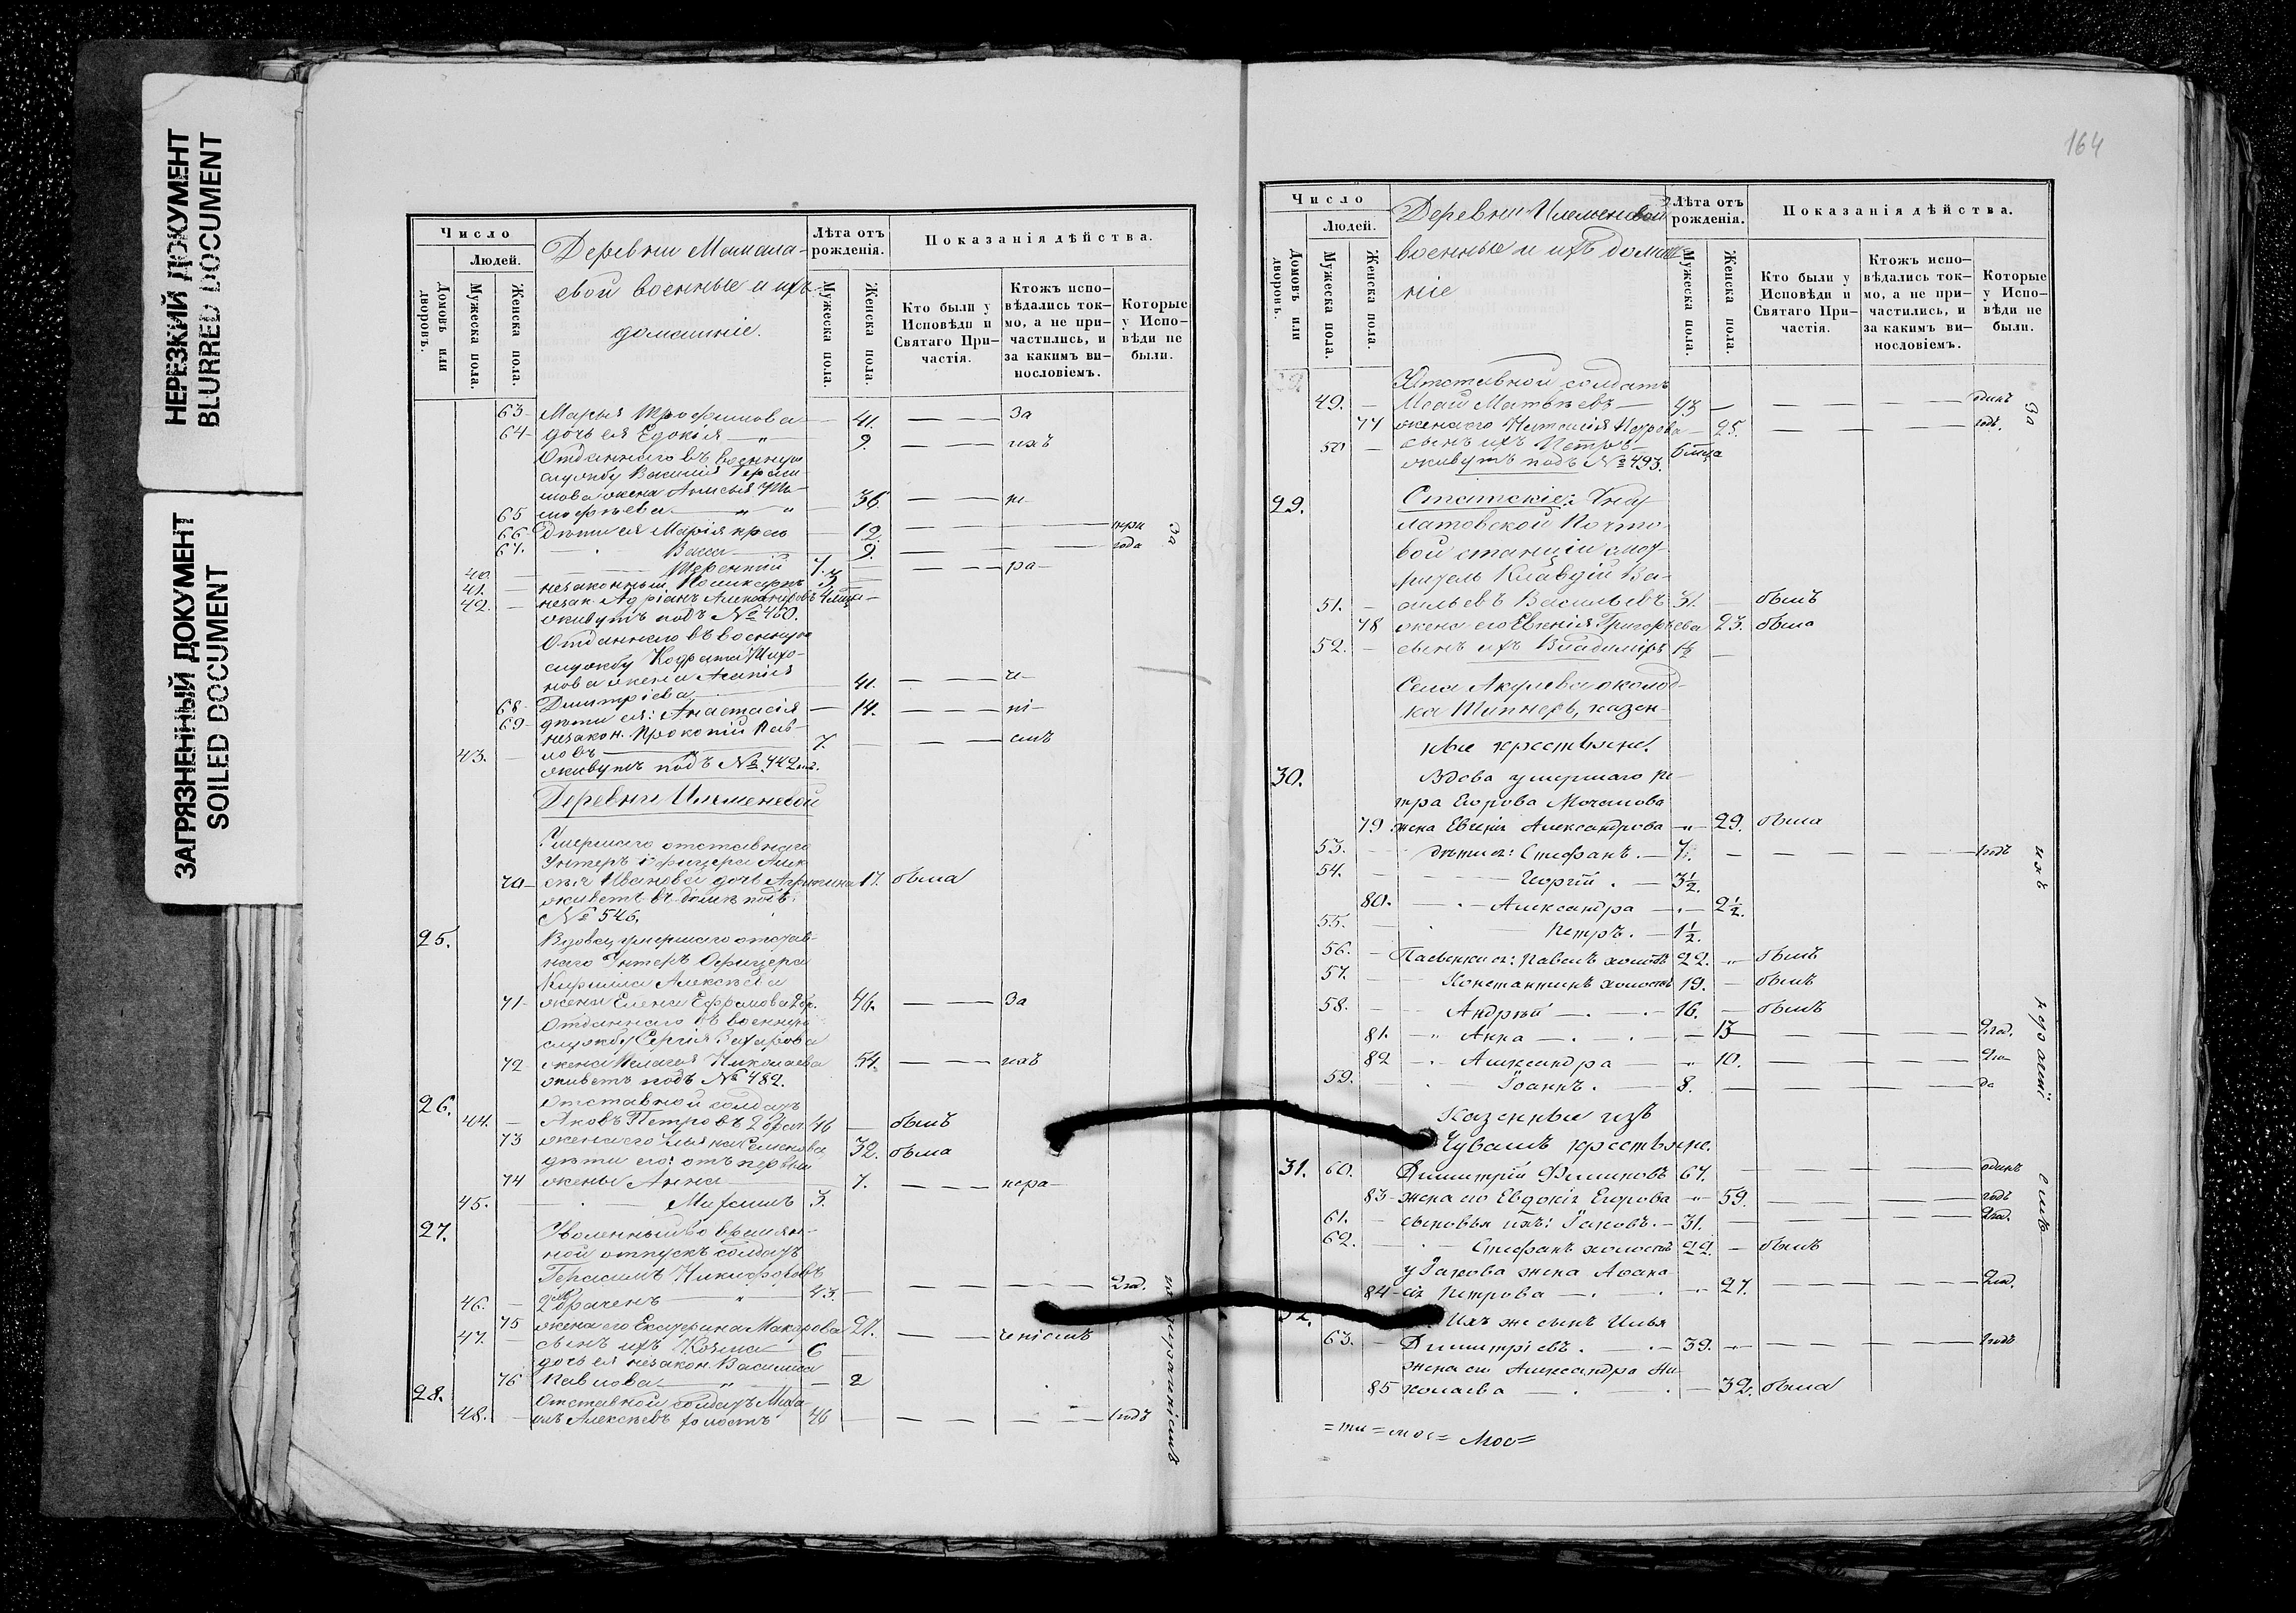 НЕРЕЗКИЙ ДОКУМЕНТ
BLURRED DOCUMENT
ЗАГРЯЗНЕННЫЙ ДОКУМЕНТ
SOILED DOCUMENT
Число
Людей.
Домовъ или дворовъ.
Мужеска пола.
Женска пола.
Деревни Мамала-
свой военные и ихъ
домашніе.
Лѣта отъ рожденія.
Мужеска пола.
Женска пола.
Показанія дѣйства.
Кто были у Исповѣди и Святаго При-частія.
Ктожъ испо-вѣдались ток-мо, а не при-частились, и за какимъ ви-нословіемъ.
Которые у Испо-вѣди не были.
63 Марья Трофимова 41. За
64 дочь ея Едокія 9. ихъ
Отданнаго въ военную
службу Василія Гераси-
мова жена Анисья Ти-
65 мофѣева 36. не
66 Дѣти ея Марія 12. три
67. Васса 9. года
За
40. Терентій 7. ра-
41. незаконный Поликарпъ 3
42. незак. Адріанъ Александровъ 4 мца
живутъ подъ № 460.
Отданнаго въ военную
службу Кодрата Тихо-
нова жена Агапія 41. че-
68 Дмитріева
69 дѣти ея: Анастасія 14. ні-
незакон. Прокопій Пав-
43. ловъ 7. емъ
живутъ подъ № 442
Деревни Ильменевой
Умершаго отставнаго
Унтеръ Офицера Алек
70 сѣя Иванова дочь Агрипина 17. была
живетъ въ домѣ подъ
№ 546.
25. Вдовец умершаго отстав-
наго Унтеръ Офицера
Кирилла Алексѣева
71 жена Елена Ефремова 46. За
Отданнаго въ военную
службу Сергія Захарова
72 жена Пелагея Николаева 54. ихъ
живетъ подъ № 482.
26. Отставной солдатъ
44. Яковъ Петровъ 2 брач. 46 былъ
73 жена его Ульяна Семенова 32. была
дѣти его: отъ первыи
74 жены Анна 7. нера-
45. Михаилъ 3.
27. Уволенный во времен-
ной отпускъ солдатъ
Герасимъ Никифоровъ
46. 2 браченъ 43. 2 год.
75 жена его Екатерина Макарова 27.
47. сынъ ихъ Козма 6 ченіемъ
дочь ея незакон. Василиса
76 Павлова 2
28. Отставной солдатъ Миха-
48. илъ Алексѣевъ холостъ 46 1 годъ
нераченіемъ
164
Число
Людей.
Домовъ или дворовъ.
Мужеска пола.
Женска пола.
Деревни Ильменевой
военные и ихъ домаш-
ніе
Лѣта отъ рожденія.
Мужеска пола.
Женска пола.
Показанія дѣйства.
Кто были у Исповѣди и Святаго При-частія.
Ктожъ испо-вѣдались ток-мо, а не при-частились, и за какимъ ви-нословіемъ.
Которые у Испо-вѣди не были.
Отставной солдатъ
49. Матвѣевъ 43 одинъ
77 жена его Наталія Петрова 25. годъ.
За
50 сынъ ихъ Петръ 6 мца
живутъ подъ № 493.
29. Статскіе:
латовской Почто-
вой станціи смот-
ритель Клавдій Ва-
51. сильевъ Васильевъ 31. былъ
78 жена его Евгенія Григорьева 23. была
52. сынъ ихъ Владиміръ 1½
Села Акулева околод-
ка Типнеръ, казен-
ные крестьяне.
30. Вдова умершаго Пе-
тра Егорова Мочалова
79 жена Евгенія Александрова 29. была
53. дѣти ея: Стефанъ. 7. 1 годъ
54. Георгій. 3½.
80. Александра 2½.
55. Петръ. 1½.
56. Пасынки ея: Павелъ холостъ 22. былъ
57. Константинъ холостъ 19. былъ
58. Андрей 16. былъ
81. Анна 13 2 год.
82 Александра 10. 2 го-
59. Іоаннъ. 8. да
ихъ
Казенные изъ
Чувашъ крестьяне.
31. 60. Димитрій Филиповъ 67. одинъ
83 жена его Евдокія Егорова 59. годъ
61. сыновья ихъ: Іаковъ. 31. 2 год.
62. Стефанъ холостъ 22. былъ
у Іакова жена Агана-
84 сія Петрова 27. 2 год.
32. Ихъ же сынъ Илья
63. Димитріевъ 39. 1 годъ
жена его Александра Ни-
85 колаева 32. была